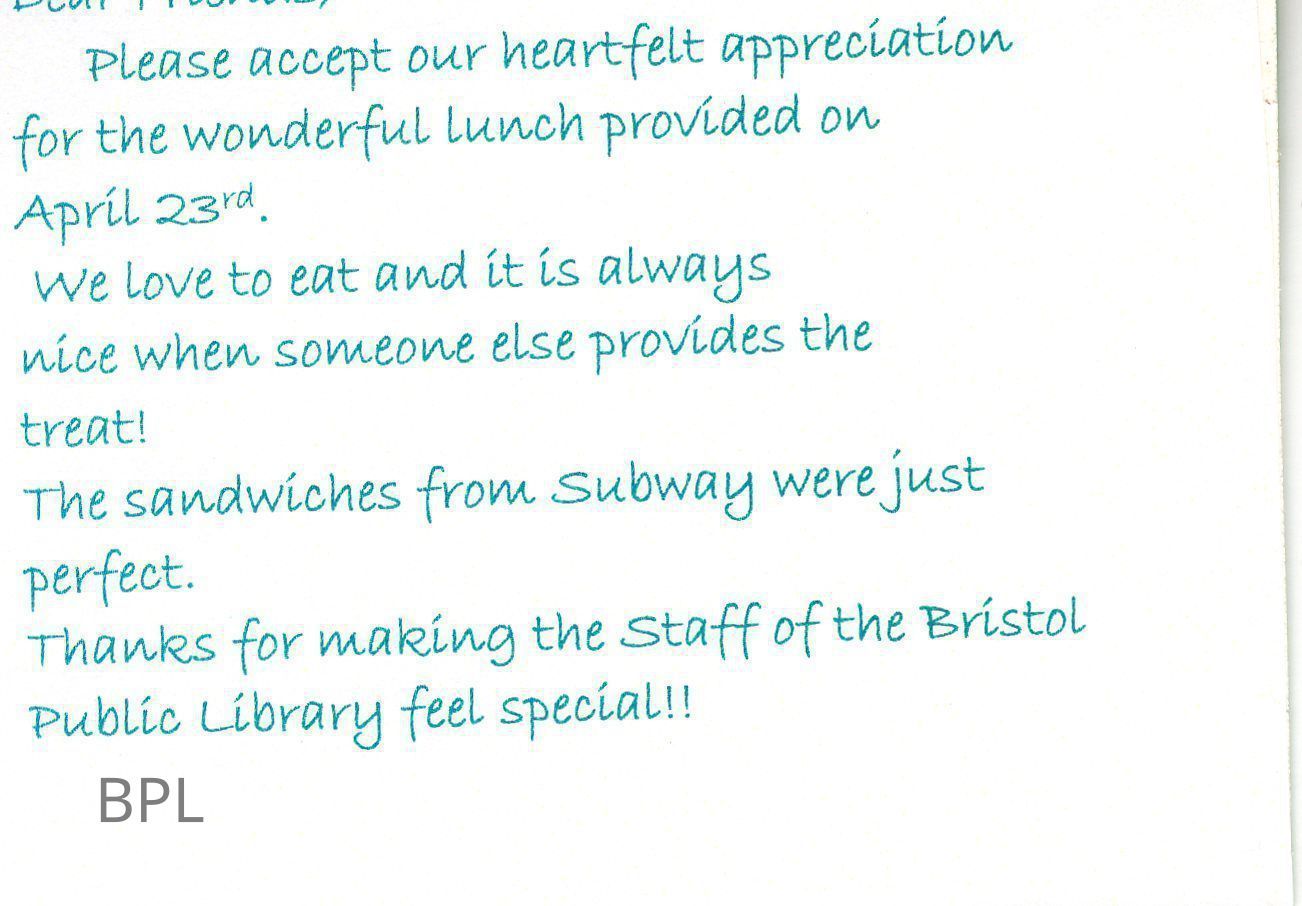 Dear Friends,
Please accept our heartfelt appreciation
for the wonderful lunch provided on
April 23rd.
We love to eat and it is always
nice when someone else provides the
treat!
The sandwiches from Subway were just
perfect.
Thanks for making the Staff of the Bristol
Public Library feel special!!
BPL